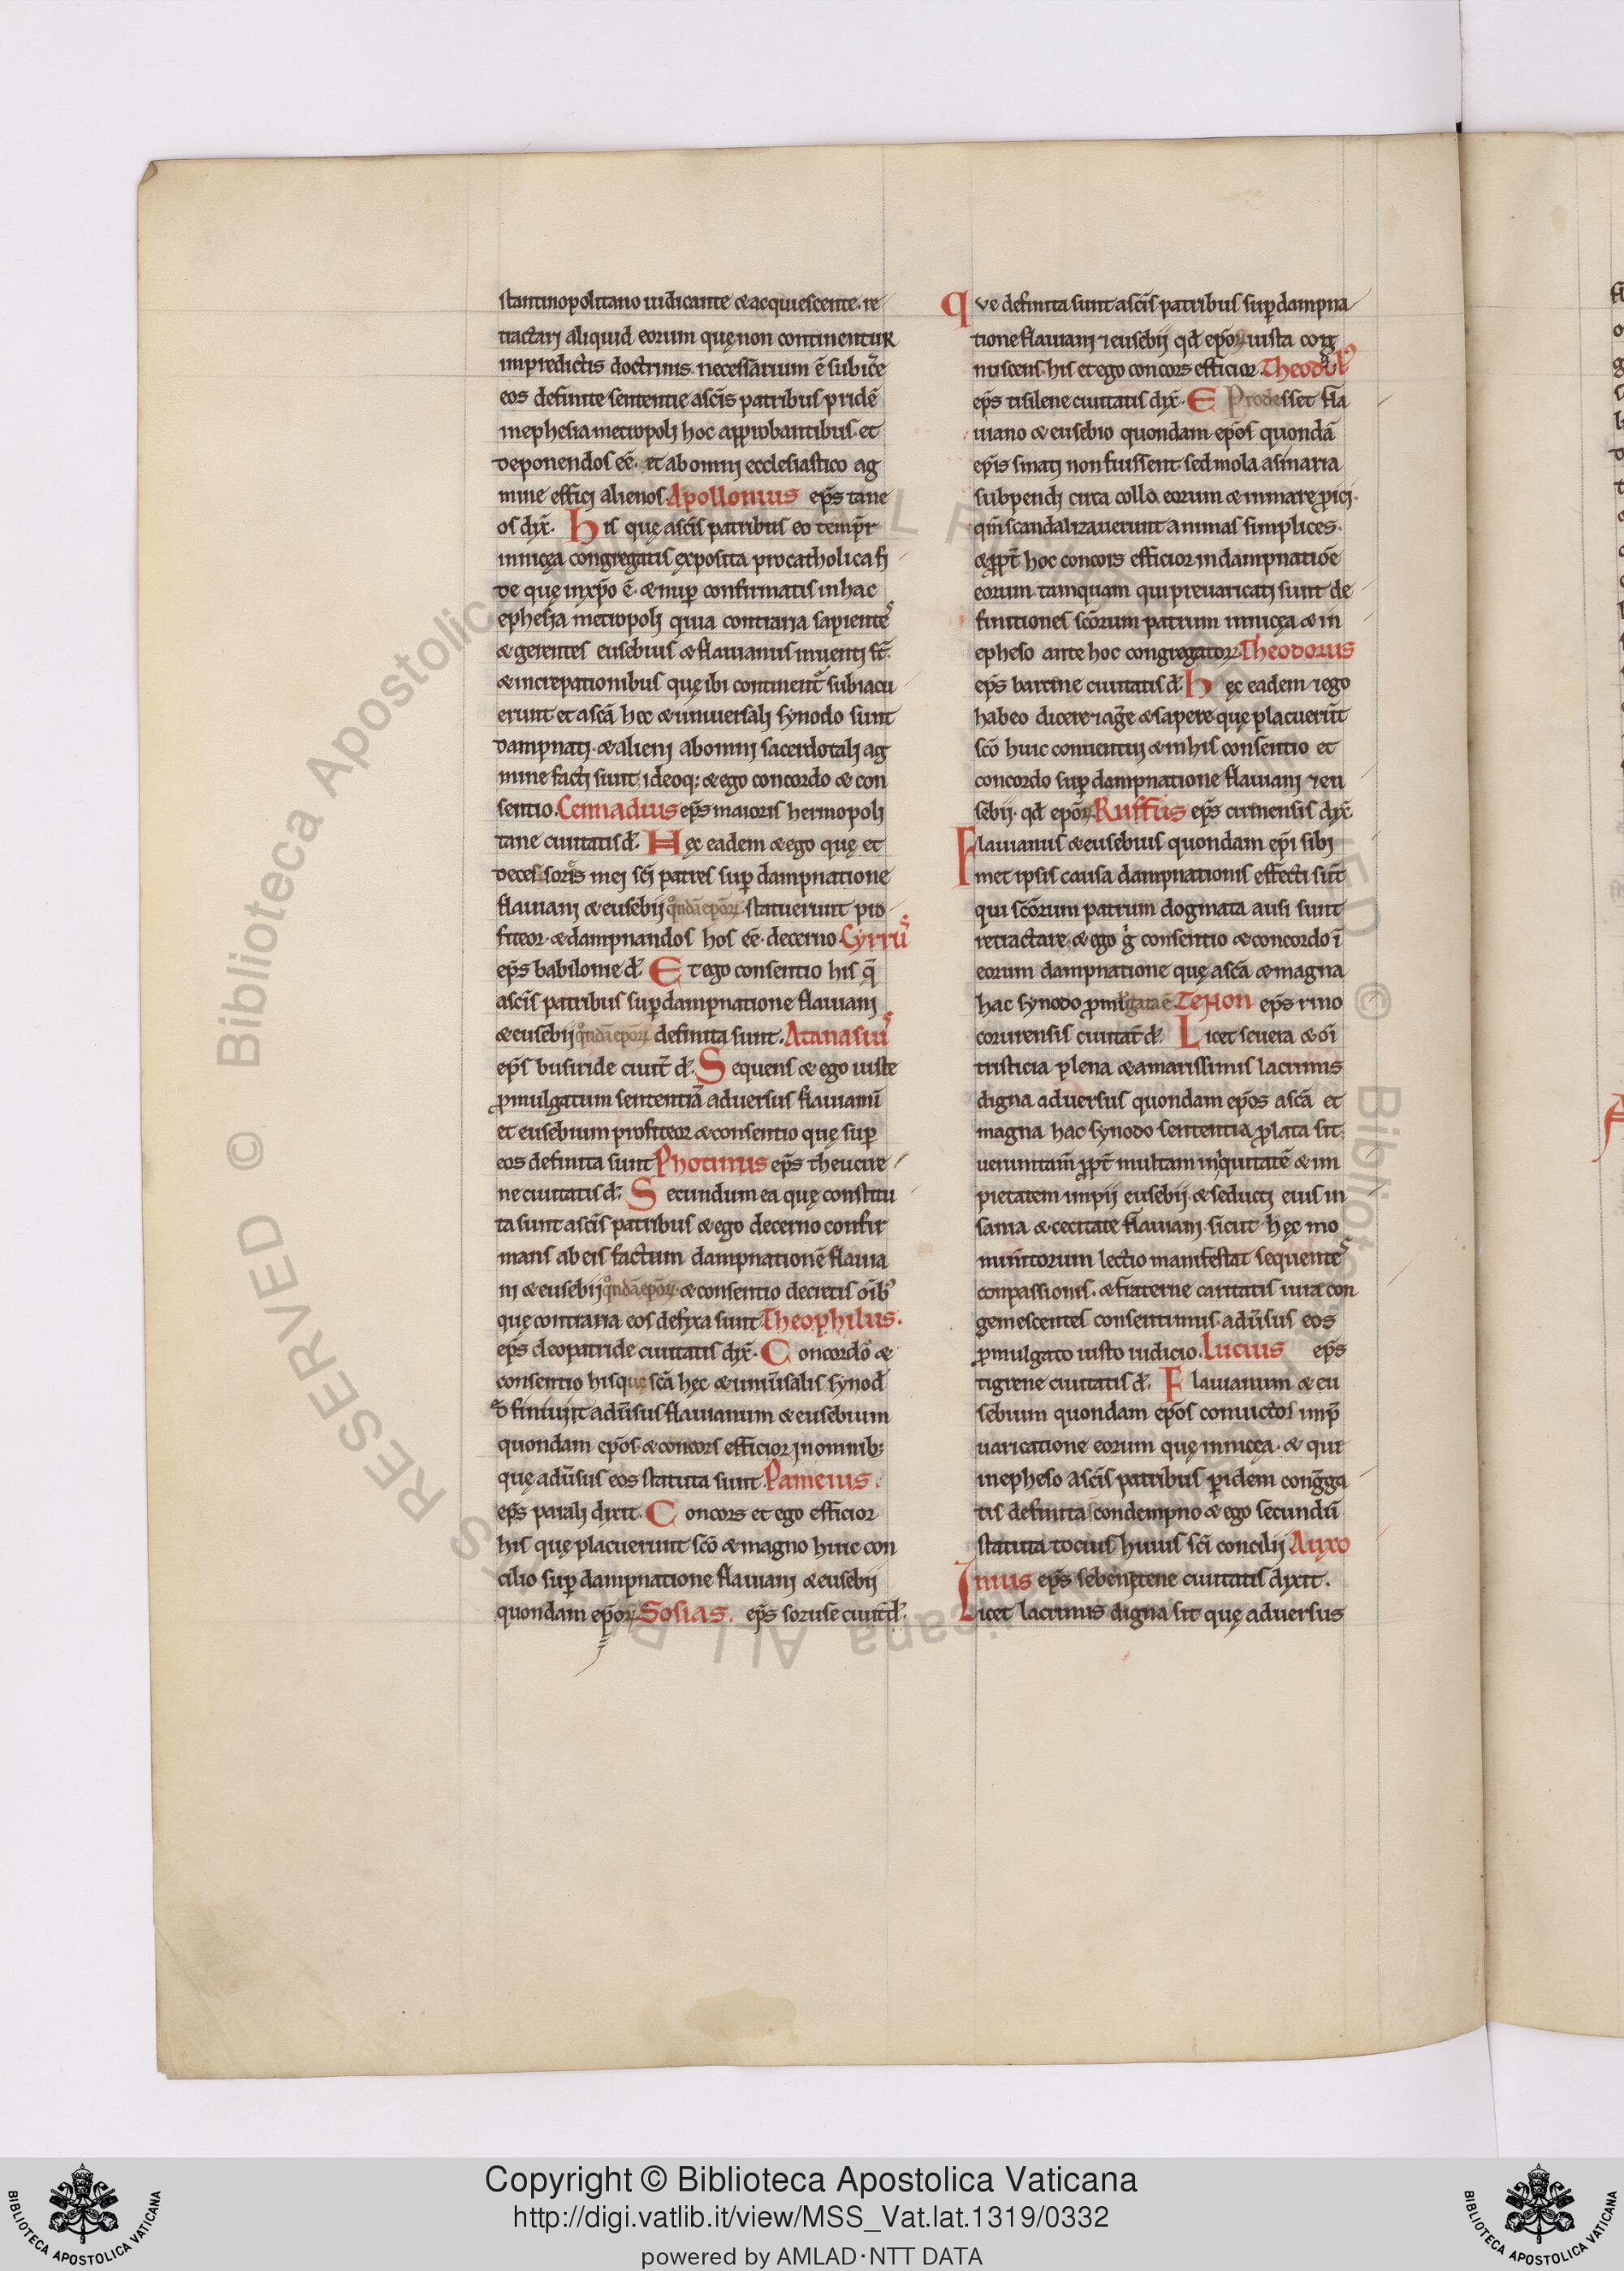 stantinopolitano iudicante & aequiescente. re
tractari aliquid eorum quę non continentur
inpredictis doctrinis necessarium ē subiic̄e
eos definite sententie a sc̄is patribus pridē
in ephesia metropoli hoc approbantibus et
deponendos eē. et ab omni ecclesiastico ag
mine effici alienos. Apollonius ep̄s tane
os dix̄. His quę a sc̄is patribus eo temp̄r
in nicęa congregatis exposita pro catholica fi
de quę in xp̄o ē. & nup̄ confirmatis in hac
ephesia metropoli quia contraria sapientes
& gerentes eusebius & flauianus inuenti st̄.
& increpationibus quę ibi continent᷑ subiacu
erunt et a sc̄a hęc & uniuersali synodo sunt
dampnati. & alieni ab omni sacerdotali ag
mine facti sunt, ideoq; & ego concordo & con
sentio. Cennadius ep̄s maioris hermopoli
tane ciuitatis d. Hęc eadem & ego quę et
decessoris mei sc̄i patres sup̄ dampnatione
flauiani & eusebii qn̄dā epōꝝ statuerunt pro
fiteor. & dampnandos hos eē. decerno Cyrrus
ep̄s babilonie d. Et ego consentio his q̄
a sc̄is patribus sup̄ dampnatione flauiani
& eusebii qn̄dā epōꝝ definita sunt. Atanasius
ep̄s busiride ciuit̄ d. Sequens & ego iuste
ꝓmulgatum sententiā aduersus flauianū
et eusebium profiteor & consentio quę sup̄
eos definita sunt Photinus ep̄s theucire
ne ciuitatis d. Secundum ea quę constitu
ta sunt a sc̄is patribus & ego decerno confir
mans ab eis factum dampnationē flauia
ni & eusebii qn̄dā epōꝝ. & consentio decretis ōib᷒
quę contraria eos defixa sunt. Theophilus.
ep̄s cleopatride ciuitatis dix̄. Concordo &
consentio his quę sc̄a hęc & uniūsalis synod
definiuit adūsus flauianum & eusebium
quondam ep̄os. & concors efficior in omnib;
quę adūsus eos statuta sunt. Pameius.
ep̄s parali dixit. Concors et ego efficior
his quę placuerunt sc̄o & magno huic con
cilio sup̄ dampnatione flauiani & eusebii
quondam epōꝝ Sosias. ep̄s soruse ciuit̄ d.
Qve definita sunt a sc̄is patribus sup̄ dampna
tione flauiani ⁊ eusebii qd̄ epōꝝ iusta cog
nuscens. his et ego concors efficior. Theodul᷒
ep̄s tisilene ciuitatis dix̄. E Prodesset fla
uiano & eusebio quondam ep̄os quondā
ep̄is si nati non fuissent sed mola asinaria
subpendi circa collo eorum & in mare ꝓici.
qm̄ scandalizauerunt animas simplices.
& ꝓpt̄ hoc concors efficior in dampnatiōe
eorum tamquam qui preuaricati sunt de
finitiones sc̄orum patrum in nicęa & in
epheso ante hoc congregatoꝝ. Theodorus
ep̄s barcine ciuitatis d. Hęc eadem ⁊ ego
habeo dicere ⁊ ag̅e & sapere quę placuerūt
sc̄o huic conuentui & in his consentio et
concordo sup̄ dampnatione flauiani ⁊ eu
sebii. qd̄ epōꝝ Ruffus ep̄s cirinensis dix̄
Flauianus & eusebius quondam ep̄i sibi
met ipsis causa dampnationis effecti sūt
qui sc̄orum patrum dogmata ausi sunt
retractare, & ego g̊ consentio & concordo ī
eorum dampnatione quę a sc̄a & magna
hac synodo ꝓml̄gata ē Teron ep̄s rino
corurensis ciuitat̄ d. Licet seuera & ōi
tristicia plena & amarissimis lacrimis
digna aduersus quondam ep̄os a sc̄a et
magna hac synodo sententia ꝓlata sit
ueruntam̄ ꝓpt̄ multam iniquitatē & im
pietatem impii eusebii & seducti eius in
sania & cecitate flauiani. sicut hęc mo
nuntorum lectio manifestat sequentes
conpassionis. & fraterne caritatis iura con
gemescentes consentimus. adūsus eos
ꝓmulgato iusto iudicio. Lucius ep̄s
tigrene ciuitatis d. Flauianum & eu
sebium quondam ep̄os conuictos imp̄
uaricatione eorum quę in nicęa. & qui
in epheso a sc̄is patribus pridem cong̅ga
tis definita condempno & ego secundū
statuta tocius huius sc̄i concilii Auxo
nius ep̄s sebenętene ciuitatis dixit.
Licet lacrimis digna sit quę aduersus
© Biblioteca Apostolica Vaticana ALL RIGHTS RESERVED
Copyright © Biblioteca Apostolica Vaticana
http://digi.vatlib.it/view/MSS_Vat.lat.1319/0332
powered by AMLAD·NTT DATA
BIBLIOTECA APOSTOLICA VATICANA
BIBLIOTECA APOSTOLICA VATICANA